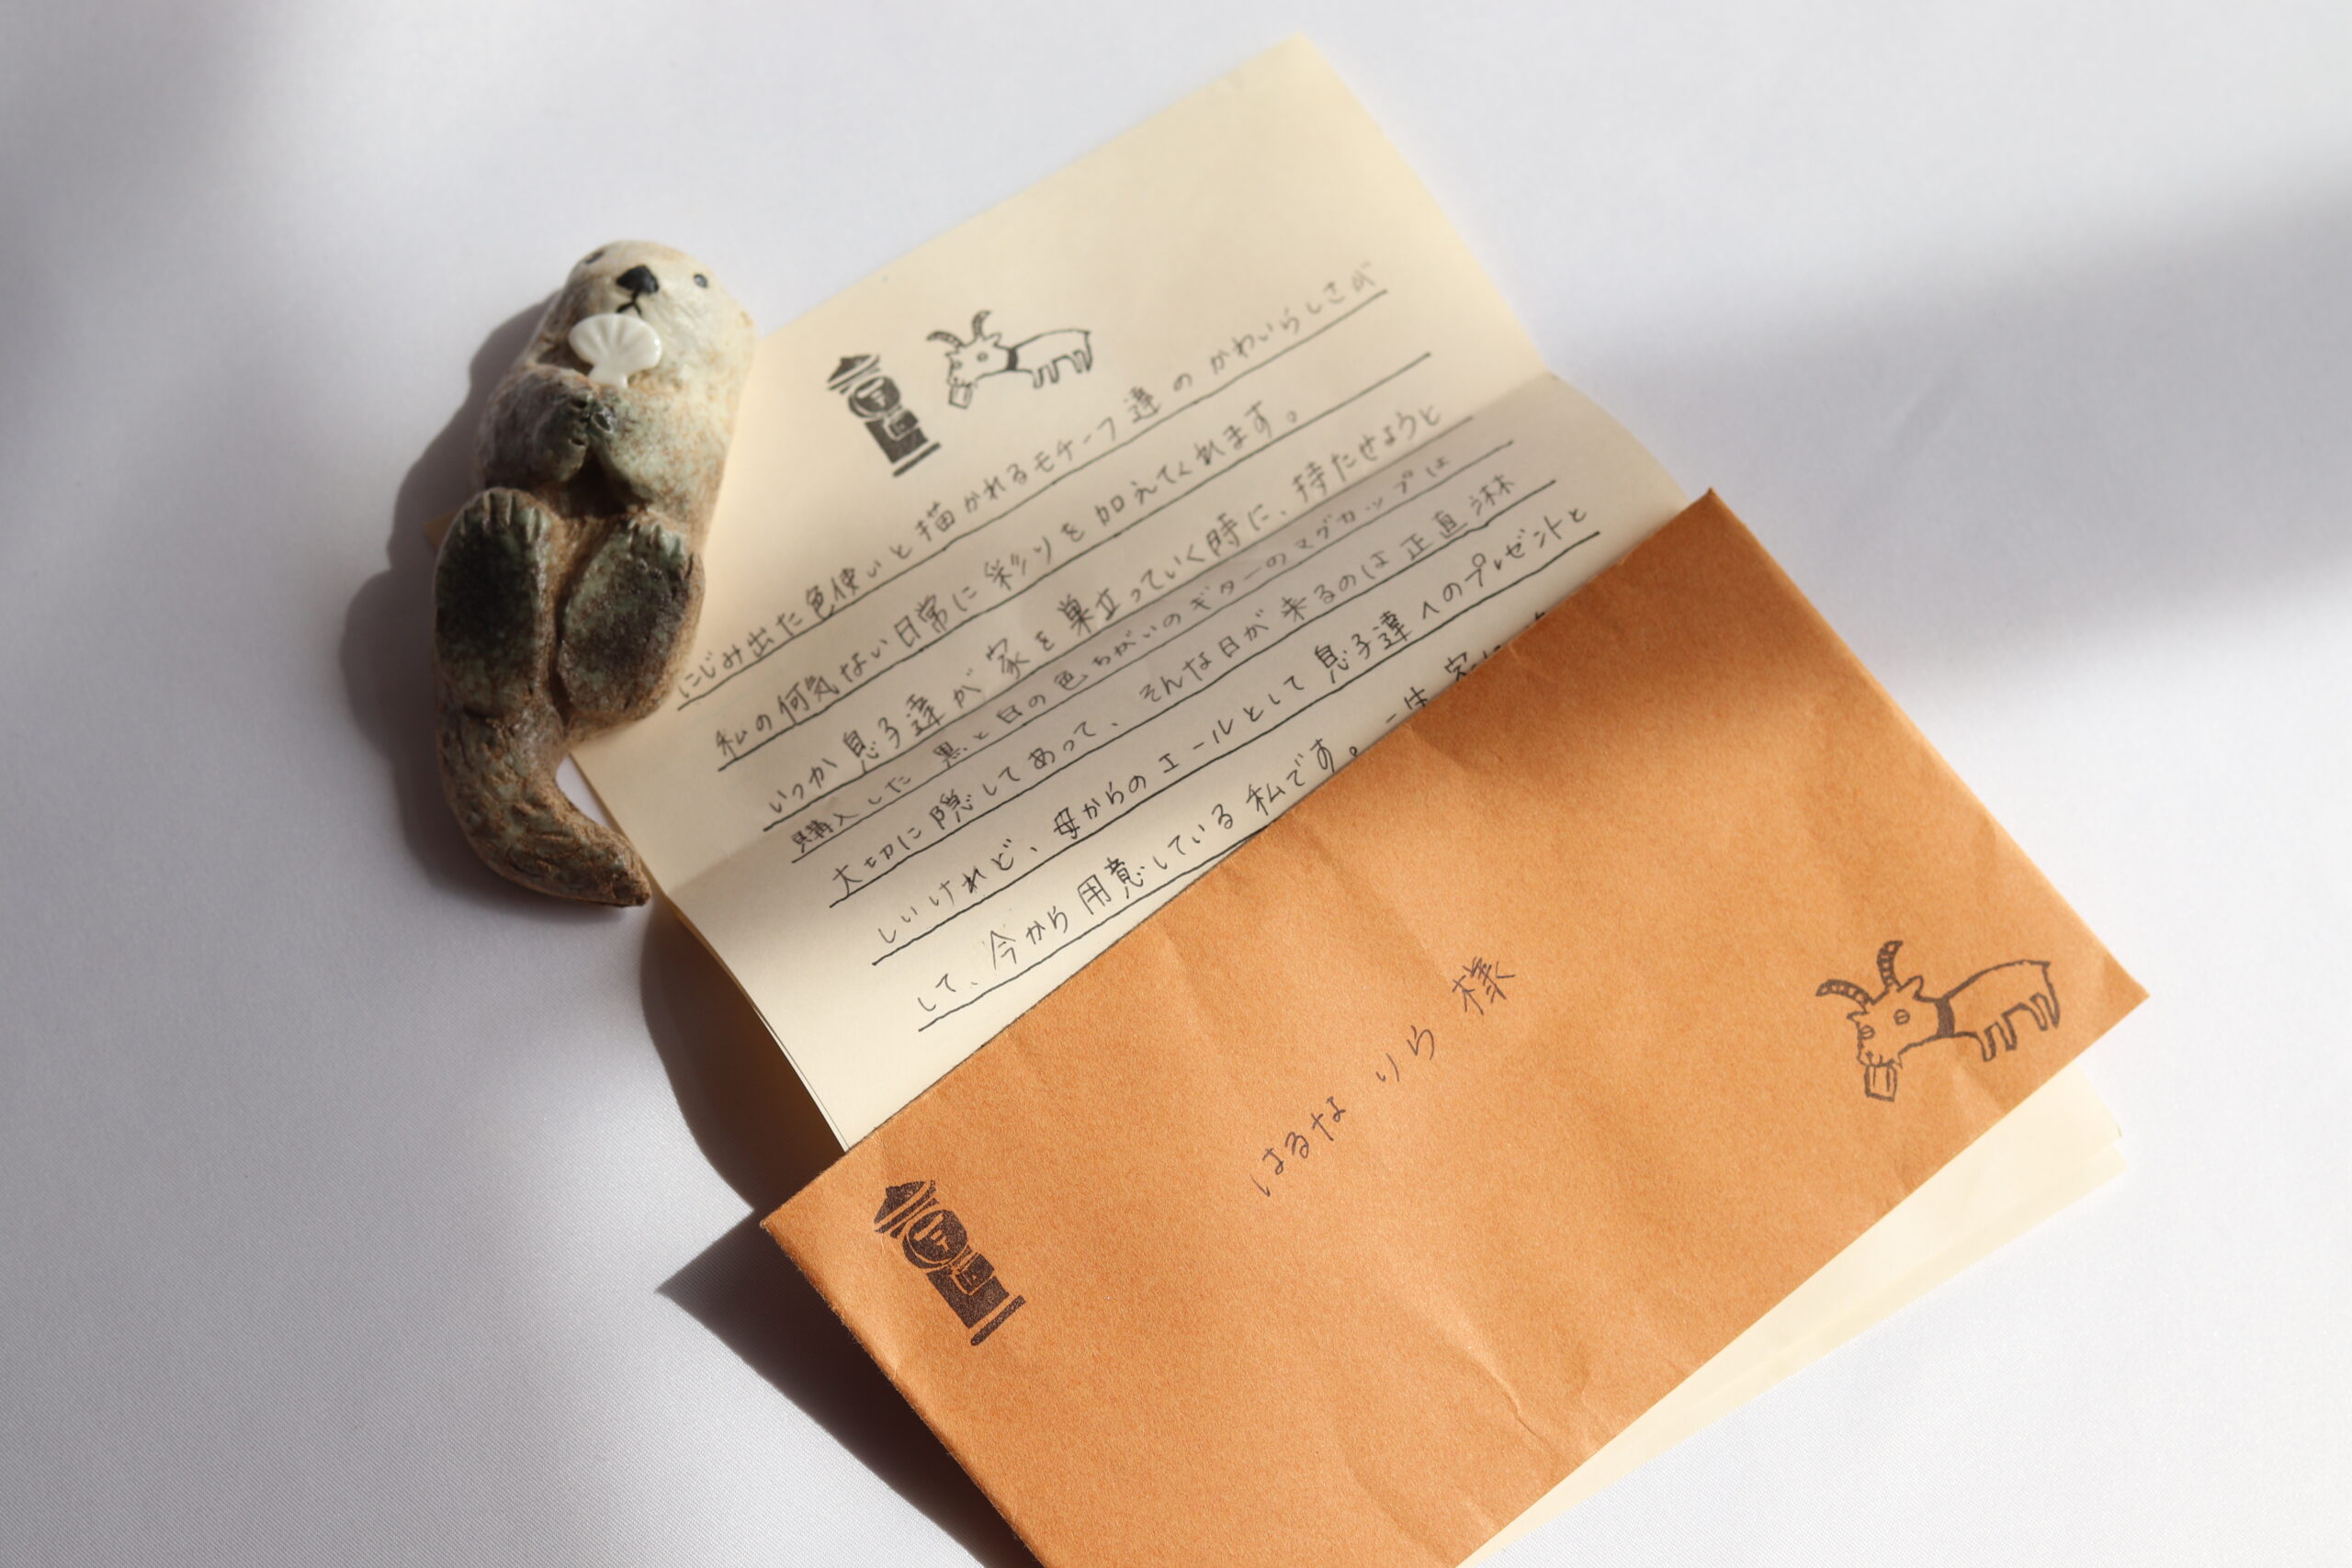 にじみ出た色使いと描かれるモチーフ達のかわいらしさが
私の何気ない日常に彩りを加えてくれます。
いつか息子達が家を巣立っていく時に、持たせようと
購入した黒と白の色ちがいのギターのマグカップは
大切に隠してあって、そんな日が来るのは正直淋
しいけれど、母からのエールとして息子達へのプレゼントと
して、今から用意している私です。一体
はるな りら 様